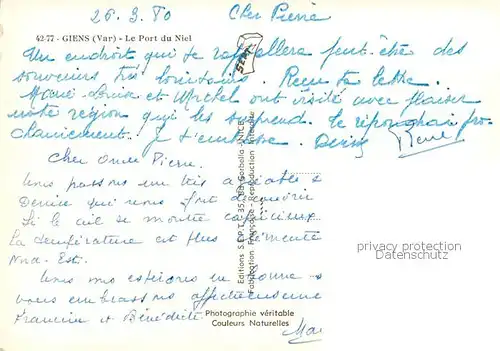 26.3.80 Cher Pierre
42-77 - GIENS (Var) - Le Port du Niel
Un endroit qui te rappellera peut-être des
souvenirs très lointains. Reçu ta lettre.
Marie-Louise et Michel ont visité avec plaisir
notre région qui les surprend. Je répondrai pro
chainement. Je t'embrasse. Denis René
Cher oncle Pierre.
Nous passons un très agréable s
qui nous fait découvrir
Si le ciel se montre capricieux
la température est plus clémente
Nord-Est.
Nous espérons
vous embrassons affectueusement
Francine et Bénédicte
Editions S.E.P.T.
Fabrication Française - Reproduction
privacy protection
Datenschutz
Photographie véritable
Couleurs Naturelles